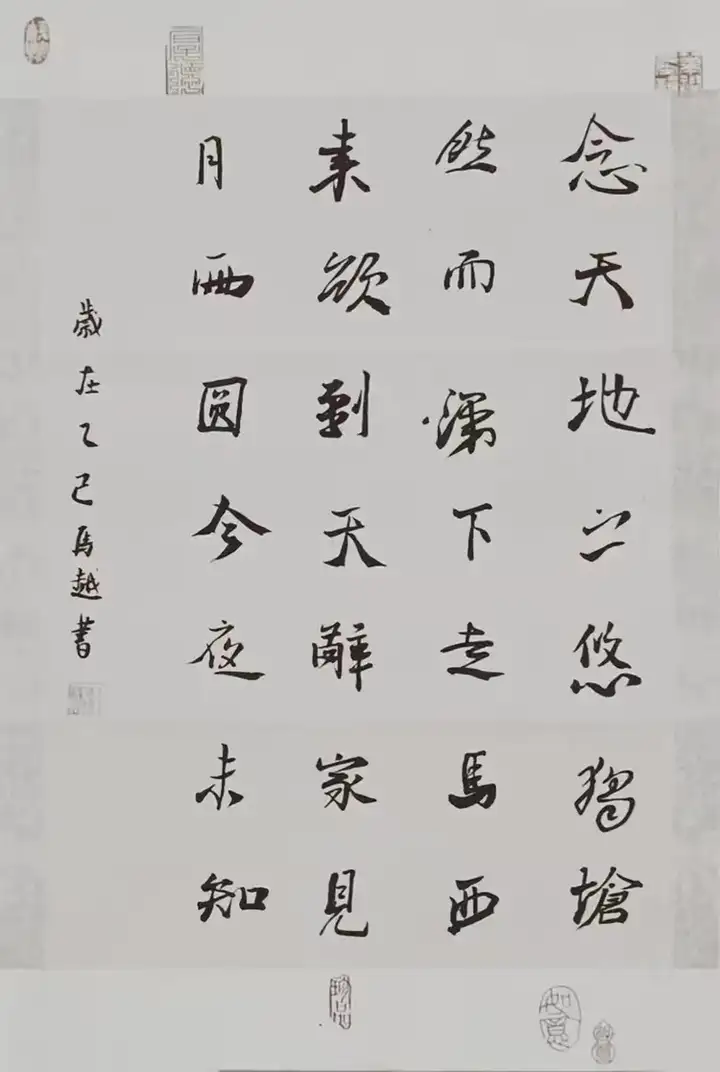 念天地之悠獨愴
然而涕下走馬西
来欲到天辭家見
月兩圓今夜未知
歲在乙巳馬越書
如意